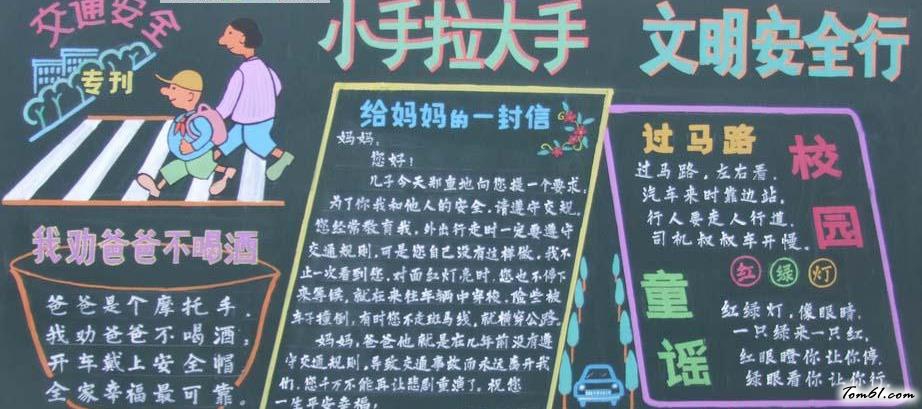 交通安全
专刊
小手拉大手
文明安全行
我劝爸爸不喝酒
爸爸是个摩托手,
我劝爸爸不喝酒,
开车戴上安全帽,
全家幸福最可靠。
给妈妈的一封信
妈妈:
您好!
儿子今天郑重地向您提一个要求,
为了你我和他人的安全,请遵守交规。
您经常教育我,外出行走时一定要遵守
交通规则,可是您自己没有这样做,我不
止一次看到您,对面红灯亮时,您也不停下
来等候,就在来往车辆中穿梭,险些被
车子撞倒,有时您不走斑马线,就横穿公路。
妈妈,爸爸他就是在几年前没有遵
守交通规则,导致交通事故而永远离开我
们,您千万不能再让悲剧重演了,祝您
一生平安幸福!
校园童谣
过马路
过马路,左右看,
汽车来时靠边站,
行人要走人行道,
司机叔叔车开慢。
红绿灯
红绿灯,像眼睛,
一只绿来一只红,
红眼瞪你让你停,
绿眼看你让你行。
Tom61.com